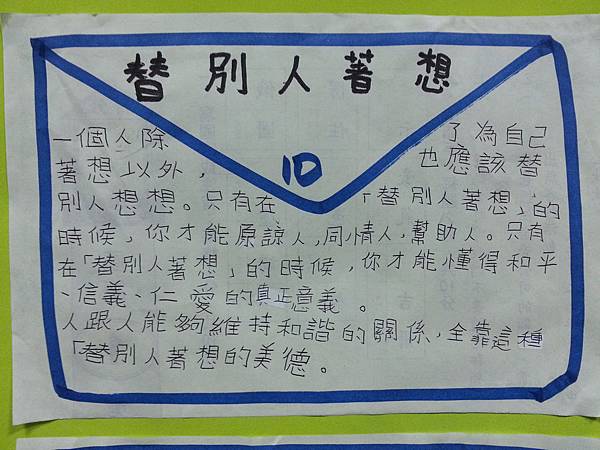 替別人著想
一個人除 了為自己
著想以外， 也應該替
10
別人想想。只有在 「替別人著想」的
時候，你才能原諒人，同情人，幫助人。只有
在「替別人著想」的時候，你才能懂得和平
、信義、仁愛的真正意義。
人跟人能夠維持和諧的關係，全靠這種
「替別人著想的美德。